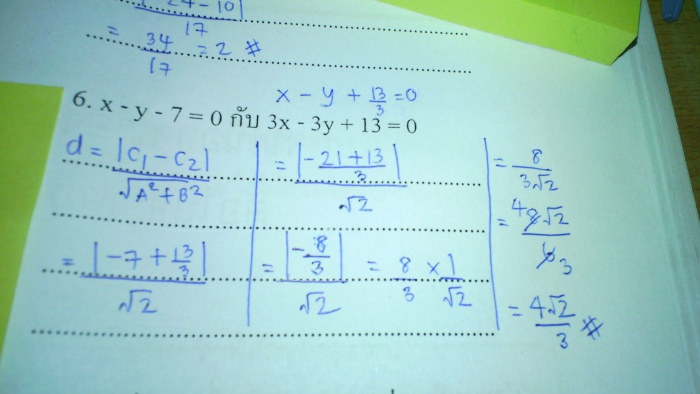 |24-10|
17
= 34/17 = 2 #
x - y + 13/3 = 0
6. x - y - 7 = 0 กับ 3x - 3y + 13 = 0
d = |C₁ - C₂| / √A² + B²
= |-7 + 13/3| / √2
= |-21 + 13 / 3| / √2
= |-8/3| / √2 = 8/3 × 1/√2
= 8 / 3√2
= 4 8√2 / 6 3
= 4√2 / 3 #